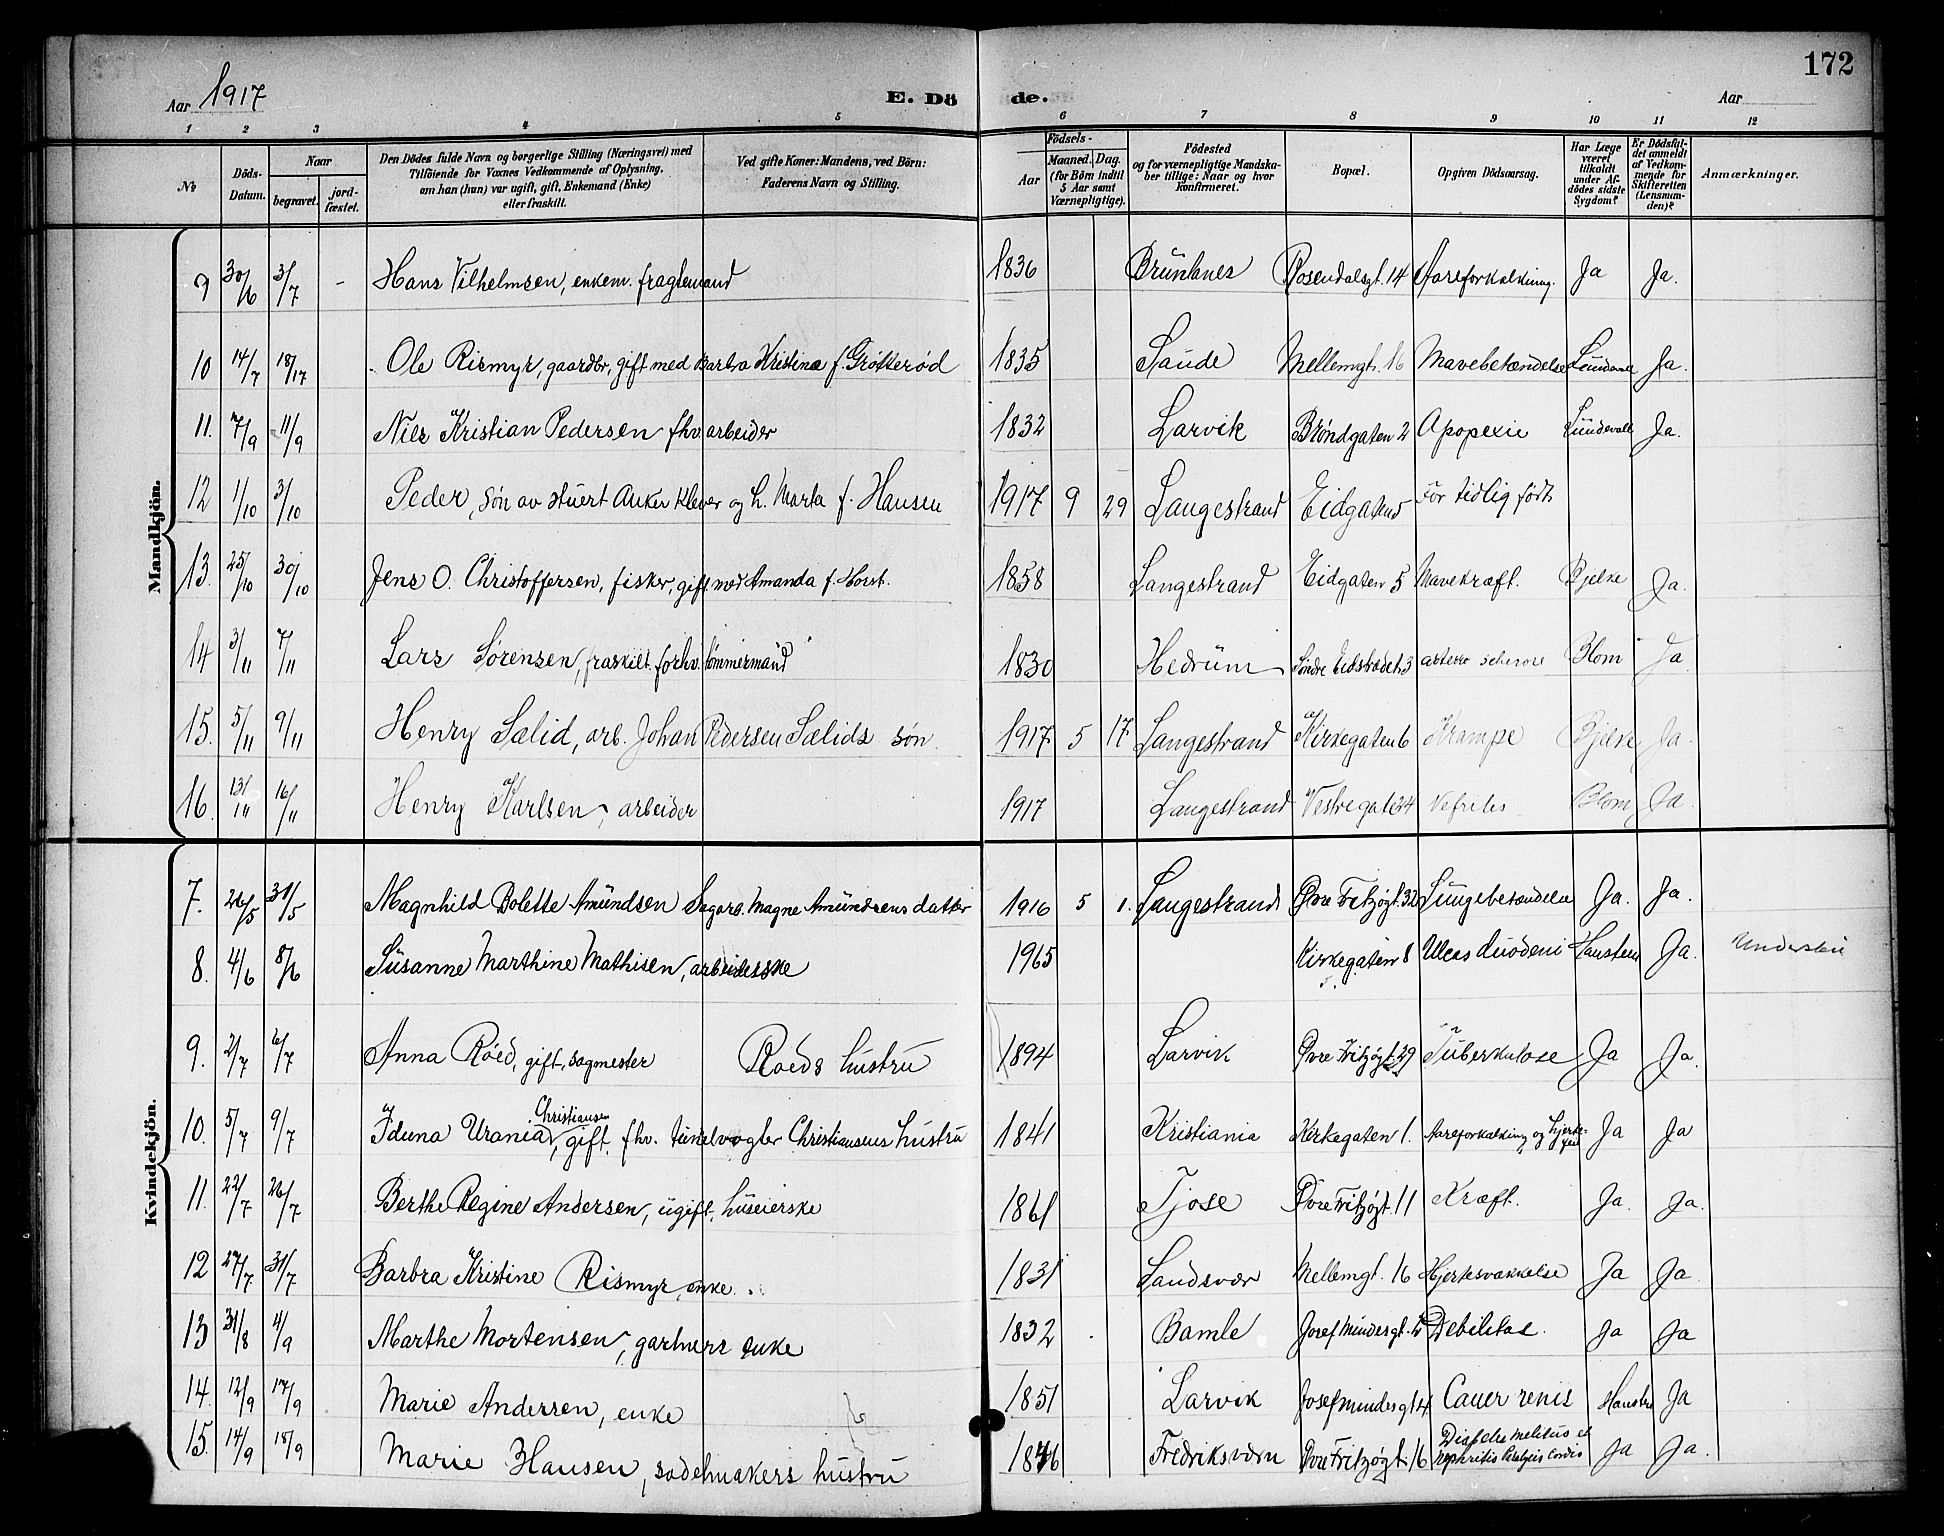 172
Aar 1917
E. Döde.
Aar
1 2 3 4 5 6 7 8 9 10 11 12
№
Döds-Datum.
Naar
begravet.
jord-fæstet.
Den Dödes fulde Navn og borgerlige Stilling (Næringsvei) med
Tilföiende for Voxnes Vedkommende af Oplysning,
om han (hun) var ugift, gift, Enkemand (Enke)
eller fraskilt.
Ved gifte Koner: Mandens, ved Börn:
Faderens Navn og Stilling.
Födsels-
Aar
Maaned. Dag.
(for Börn indtil
5 Aar samt
Værnepligtige).
Födested
og for værnepligtige Mandska-
ber tillige: Naar og hvor
konfirmeret.
Bopæl.
Opgiven Dödsaarsag.
Har Læge
været
tilkaldt
under Af-
dödes sidste
Sygdom?
Er Dödsfal-
det anmeldt
af Vedkom-
mende for
Skifteretten
(Lensman-
den)?
Anmærkninger.
Mandkjön.
9 30/6 3/7 - Hans Vilhelmsen, enkem. fragtemand 1836 Brunlanes Rosendalsgt. 14 Aareforkalkning. Ja Ja.
10 14/7 18/17 Ole Rismyr, gaardbr, gift med Barbra Kristina f. Grøtterød 1835 Saude Mellemgt. 16 Mavebetændelse Ja.
11. 7/9 11/9 Nils Kristian Pedersen fhv. arbeider 1832 Larvik Brøndgaten 2 Apopexie Lundevall Ja.
12 1/10 3/10 Peder, søn av stuert Anker Klever og h. Marta f. Hansen 1917 9 29 Langestrand Eidgaten 5 For tidlig født
13. 25/10 30/10 Jens O. Christoffersen, fisker, gift med Amanda f. Horst. 1858 Langestrand Eidgaten 5 Mavekræft. Bjelke Ja.
14 3/11 7/11 Lars Sørensen, fraskilt. forhv. tømmermand 1830 Hedrum Søndre Eidstrædet 3 Blom Ja
15. 5/11 9/11 Henry Sælid, arb. Johan Pedersen Sælids søn. 1917 5 17 Langestrand Kirkegaten 6 Krampe Bjelke Ja.
16. 13/11 16/11 Henry Karlsen, arbeider 1917 Langestrand Vestregate 34 Nefrites Blom Ja
Kvindekjön.
7. 26/5 31/5 Magnhild Bolette Amundsen Sagarb. Magne Amundsens datter 1916 5 1. Langestrand Øvre Fritzøgt. 32 Lungebetændelse Ja. Ja.
8. 4/6 8/6 Susanne Marthine Mathisen, arbeiderske 1965 Kirkegaten 8 Ulcus duodeni Hansteen Ja.
9. 2/7 6/7 Anna Röed, gift, sagmester Roeds hustru 1894 Larvik Øvre Fritzøgt. 29 Tuberkulose Ja Ja.
10. 5/7 9/7 Iduna Urania Christiansen, gift. fhv. tunelvogter Christiansens hustru 1841 Kristiania Kirkegaten 1. Aareforkalkning og hjertefeil Ja Ja
11. 22/7 26/7 Berthe Regine Andersen, ugift, huseierske 1861 Tjose Øvre Fritzøgt. 11 Kræft. Ja. Ja.
12 27/7 31/7 Barbra Kristine Rismyr, enke. 1831 Landsvær Mellemgt. 16 Hjertesvækkelse Ja Ja
13 31/8 4/9 Marthe Mortensen, gartners enke 1832 Bamle Josef Mindesgt. Debilitas. Ja Ja
14. 12/9 17/9 Marie Andersen, enke 1851 Larvik Josefmindesgt 4 Cancer renis Ja
15. 14/9 18/9 Marie Hansen, sadelmakers hustru 1846 Fredriksværn Øvre Fritzøgt. 16 Diabetes melitus et nephritis Paralysis cordis Ja Ja.